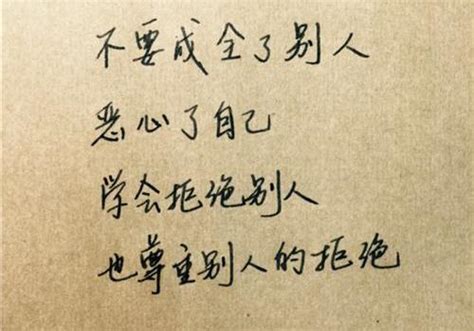 不要成全了别人
恶心了自己
学会拒绝别人
也尊重别人的拒绝